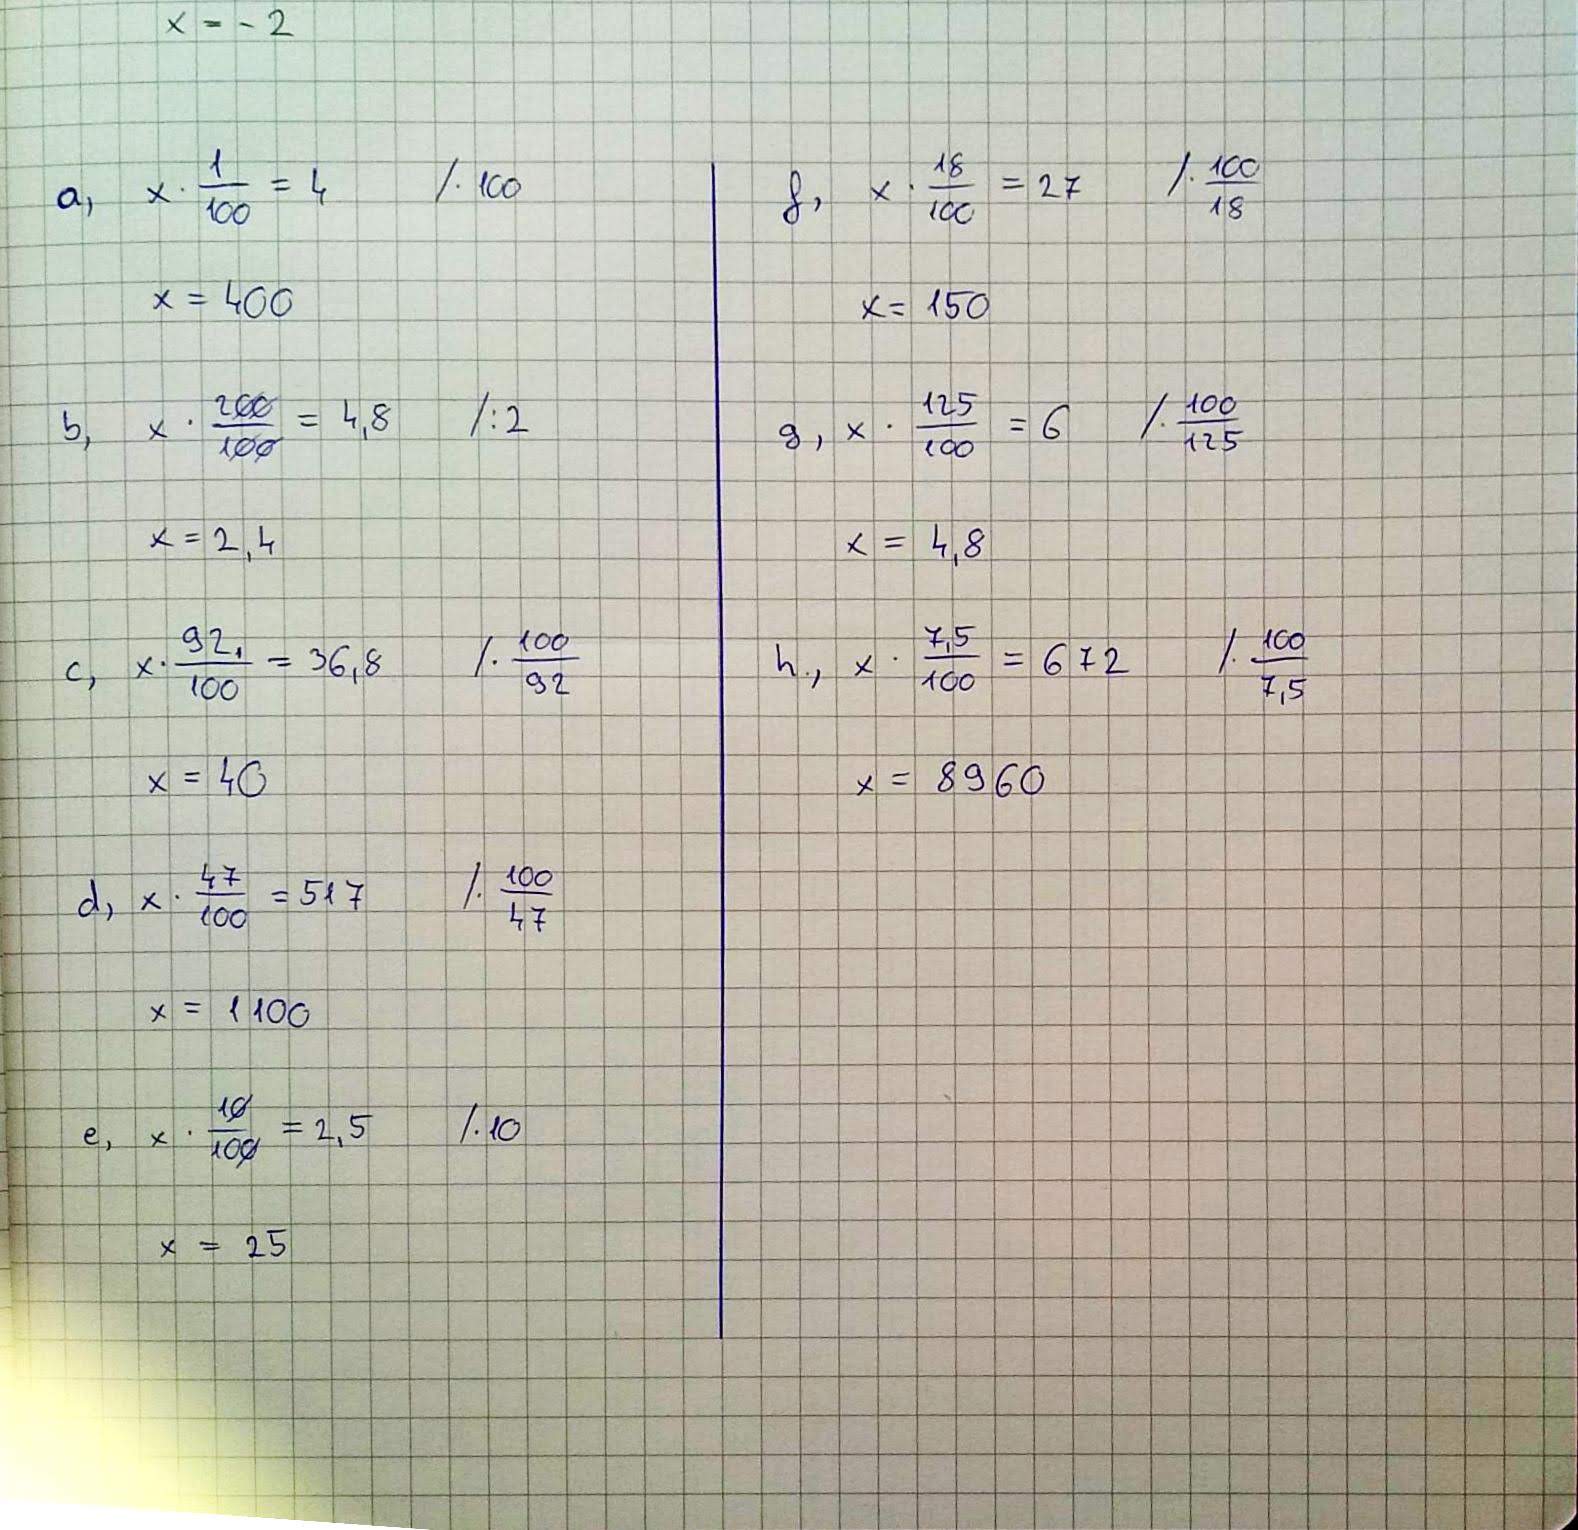 x = - 2
a, x · 1/100 = 4 /· 100
x = 400
b, x · 200/100 = 4,8 /: 2
x = 2,4
c, x · 92,/100 = 36,8 /· 100/92
x = 40
d, x · 47/100 = 517 /· 100/47
x = 1100
e, x · 10/100 = 2,5 /· 10
x = 25
f, x · 18/100 = 27 /· 100/18
x = 150
g, x · 125/100 = 6 /· 100/125
x = 4,8
h., x · 7,5/100 = 672 /· 100/7,5
x = 8960